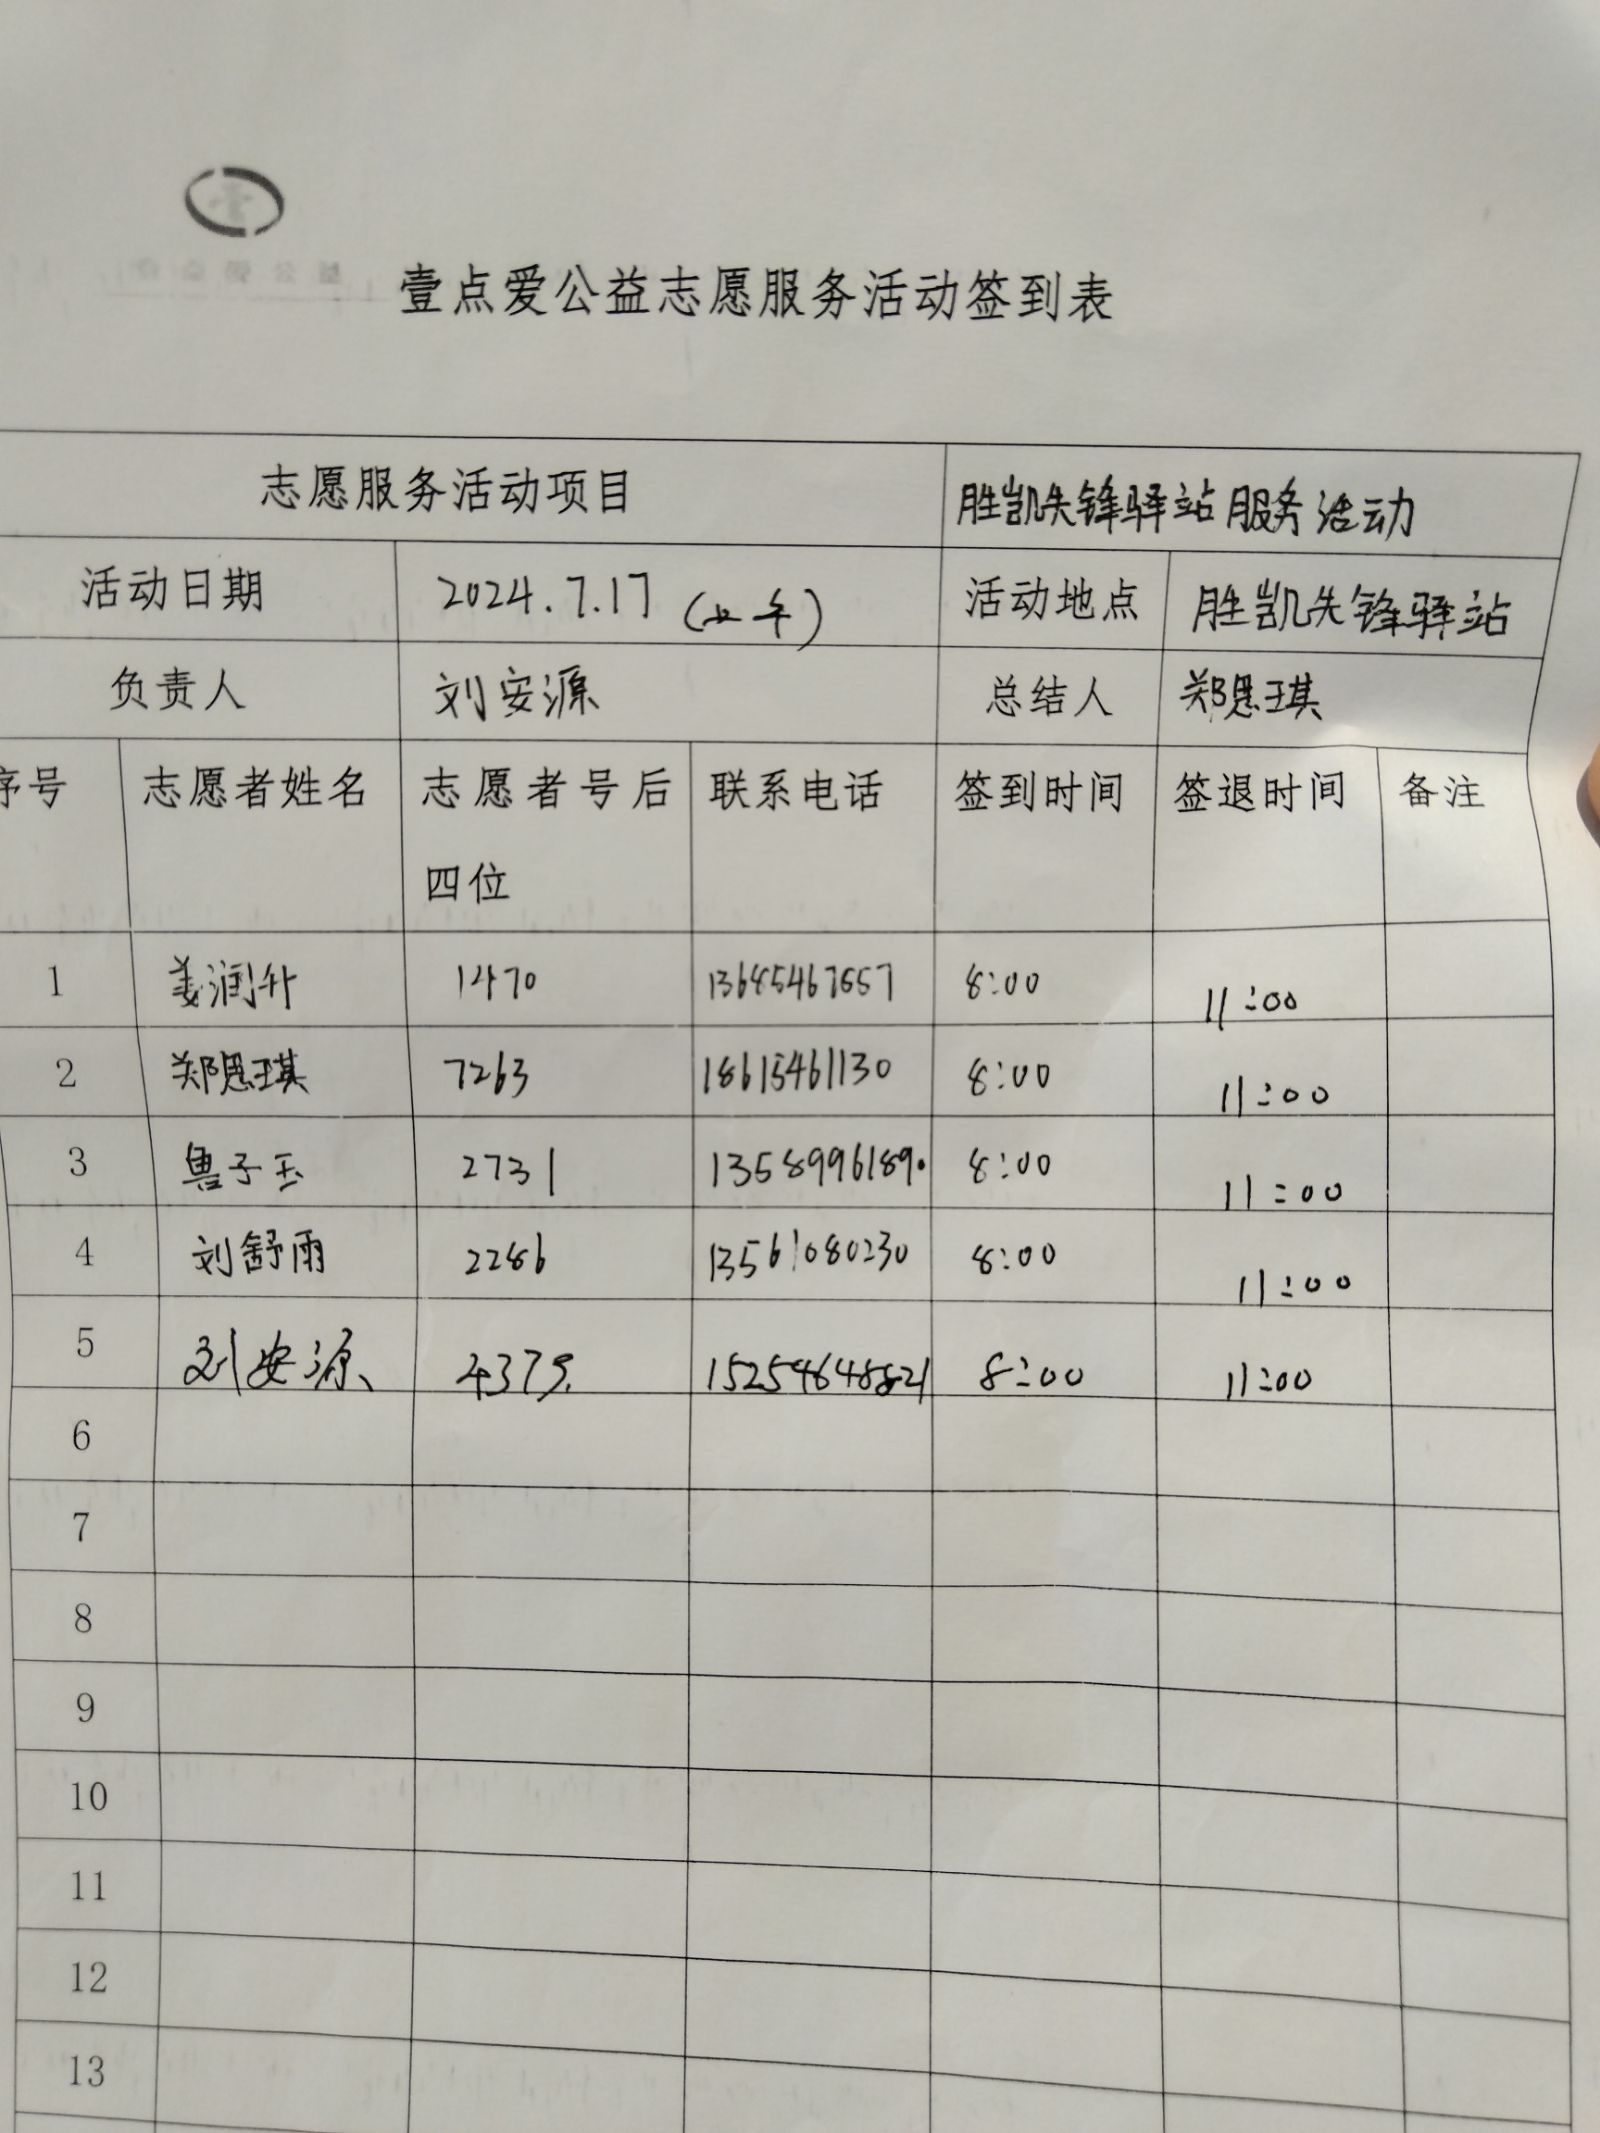 壹点爱公益志愿服务活动签到表
志愿服务活动项目 胜凯先锋驿站服务活动
活动日期 2024.7.17 (上午) 活动地点 胜凯先锋驿站
负责人 刘安源 总结人 郑思琪
序号 志愿者姓名 志愿者号后四位 联系电话 签到时间 签退时间 备注
1 姜润升 1470 13685467657 8:00 11:00
2 郑思琪 7263 18615461130 8:00 11:00
3 鲁子玉 2731 13589961890 8:00 11:00
4 刘舒雨 2286 13561080230 8:00 11:00
5 刘安源 4379 15254648821 8:00 11:00
6
7
8
9
10
11
12
13